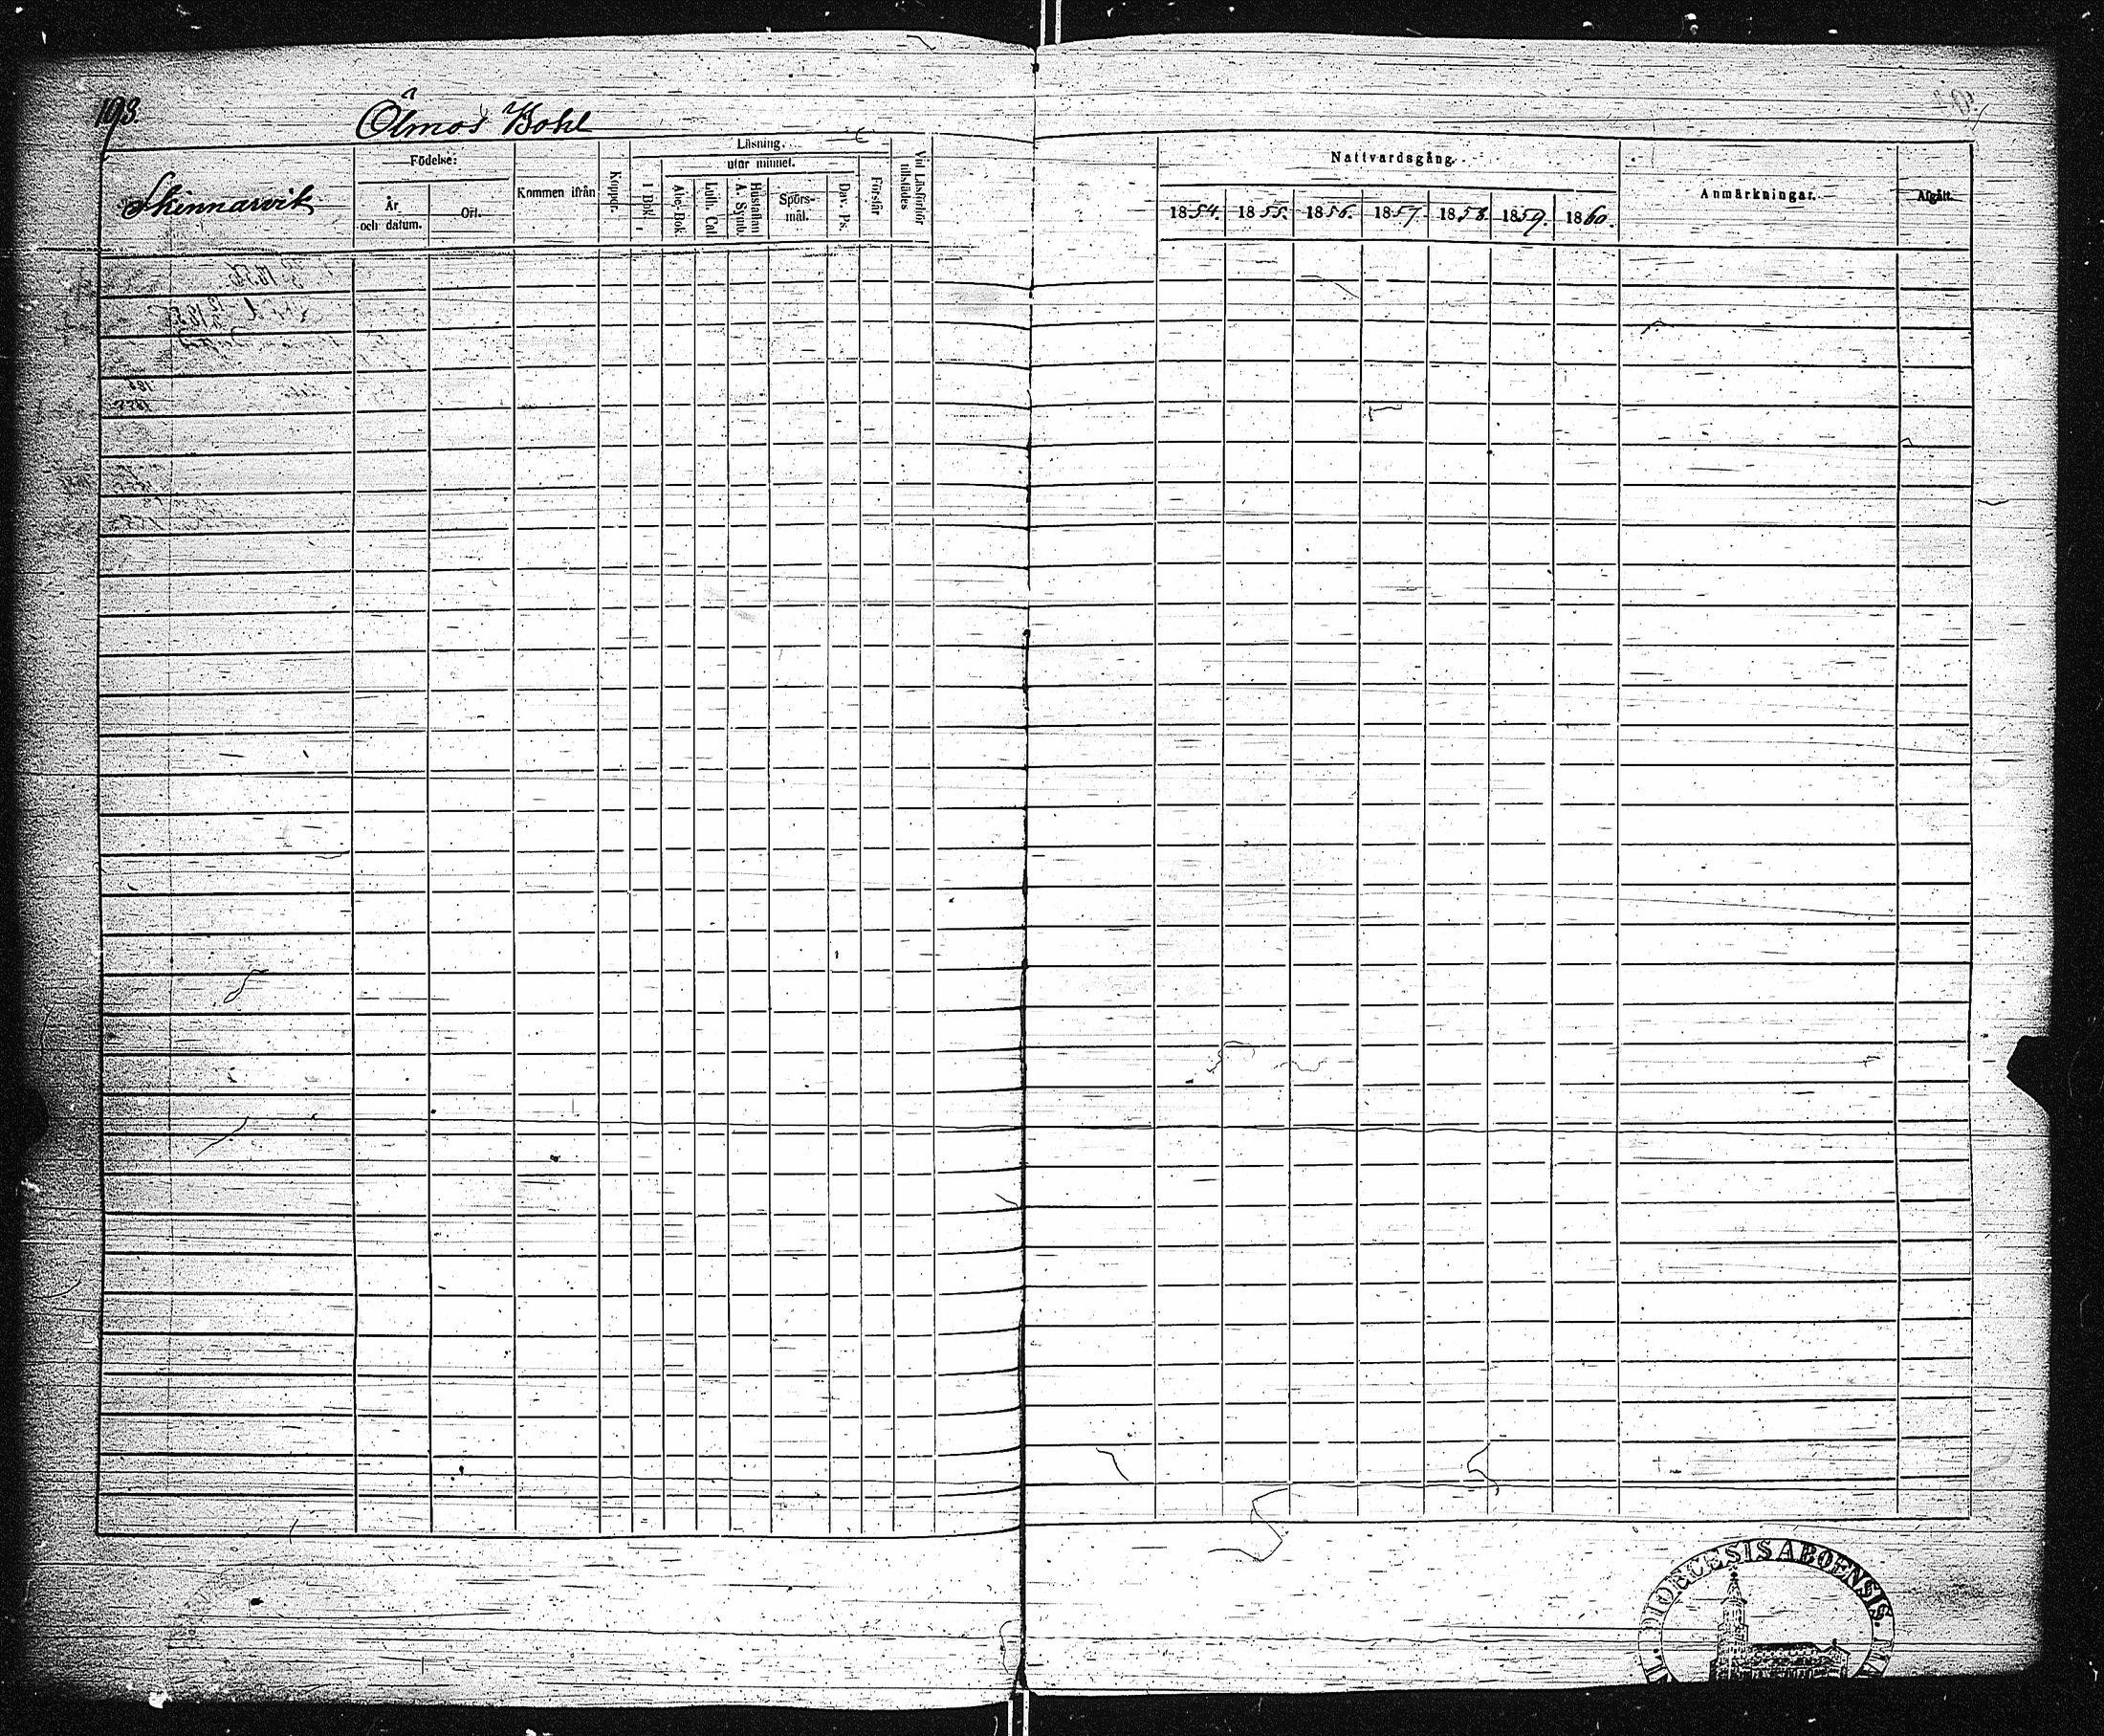 193.
Ölmos Bohl
Skinnarvik
Födelse:
År och datum.
Ort.
Kommen ifrån
Koppor.
Läsning.
utur minnet.
I Bok.
Abc-Bok.
Luth. Cat.
Hustaflan A. Symb.
Spörs-mål.
Dav. Ps.
Förstår
Vid Läsförhör tillstädes
Nattvardsgång.
1854. 1855. 1856. 1857. 1858. 1859. 1860.
Anmärkningar.
Afgått.
DIOECESIS ABOENSIS.